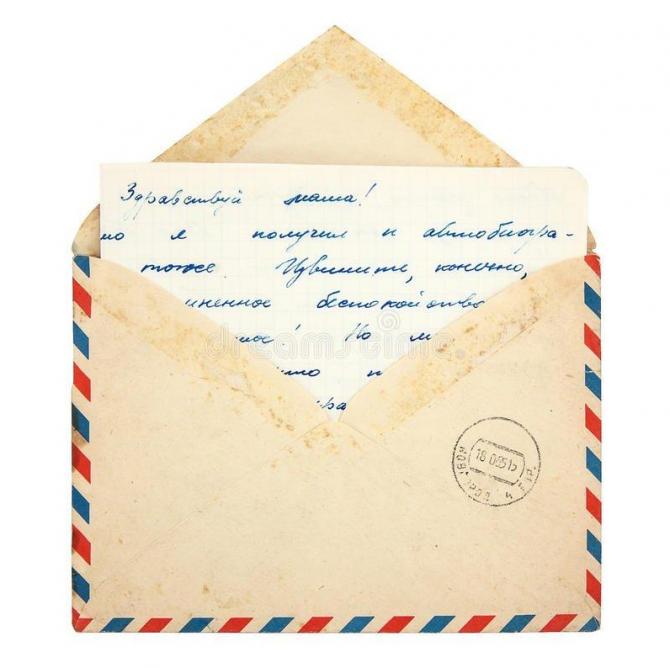 Здравствуй мама!
мо я получил и автобиогра-
тоже. Извините, конечно,
иненное беспокойство
! Но м
dreamstime
мо п
ра
18.0695 15